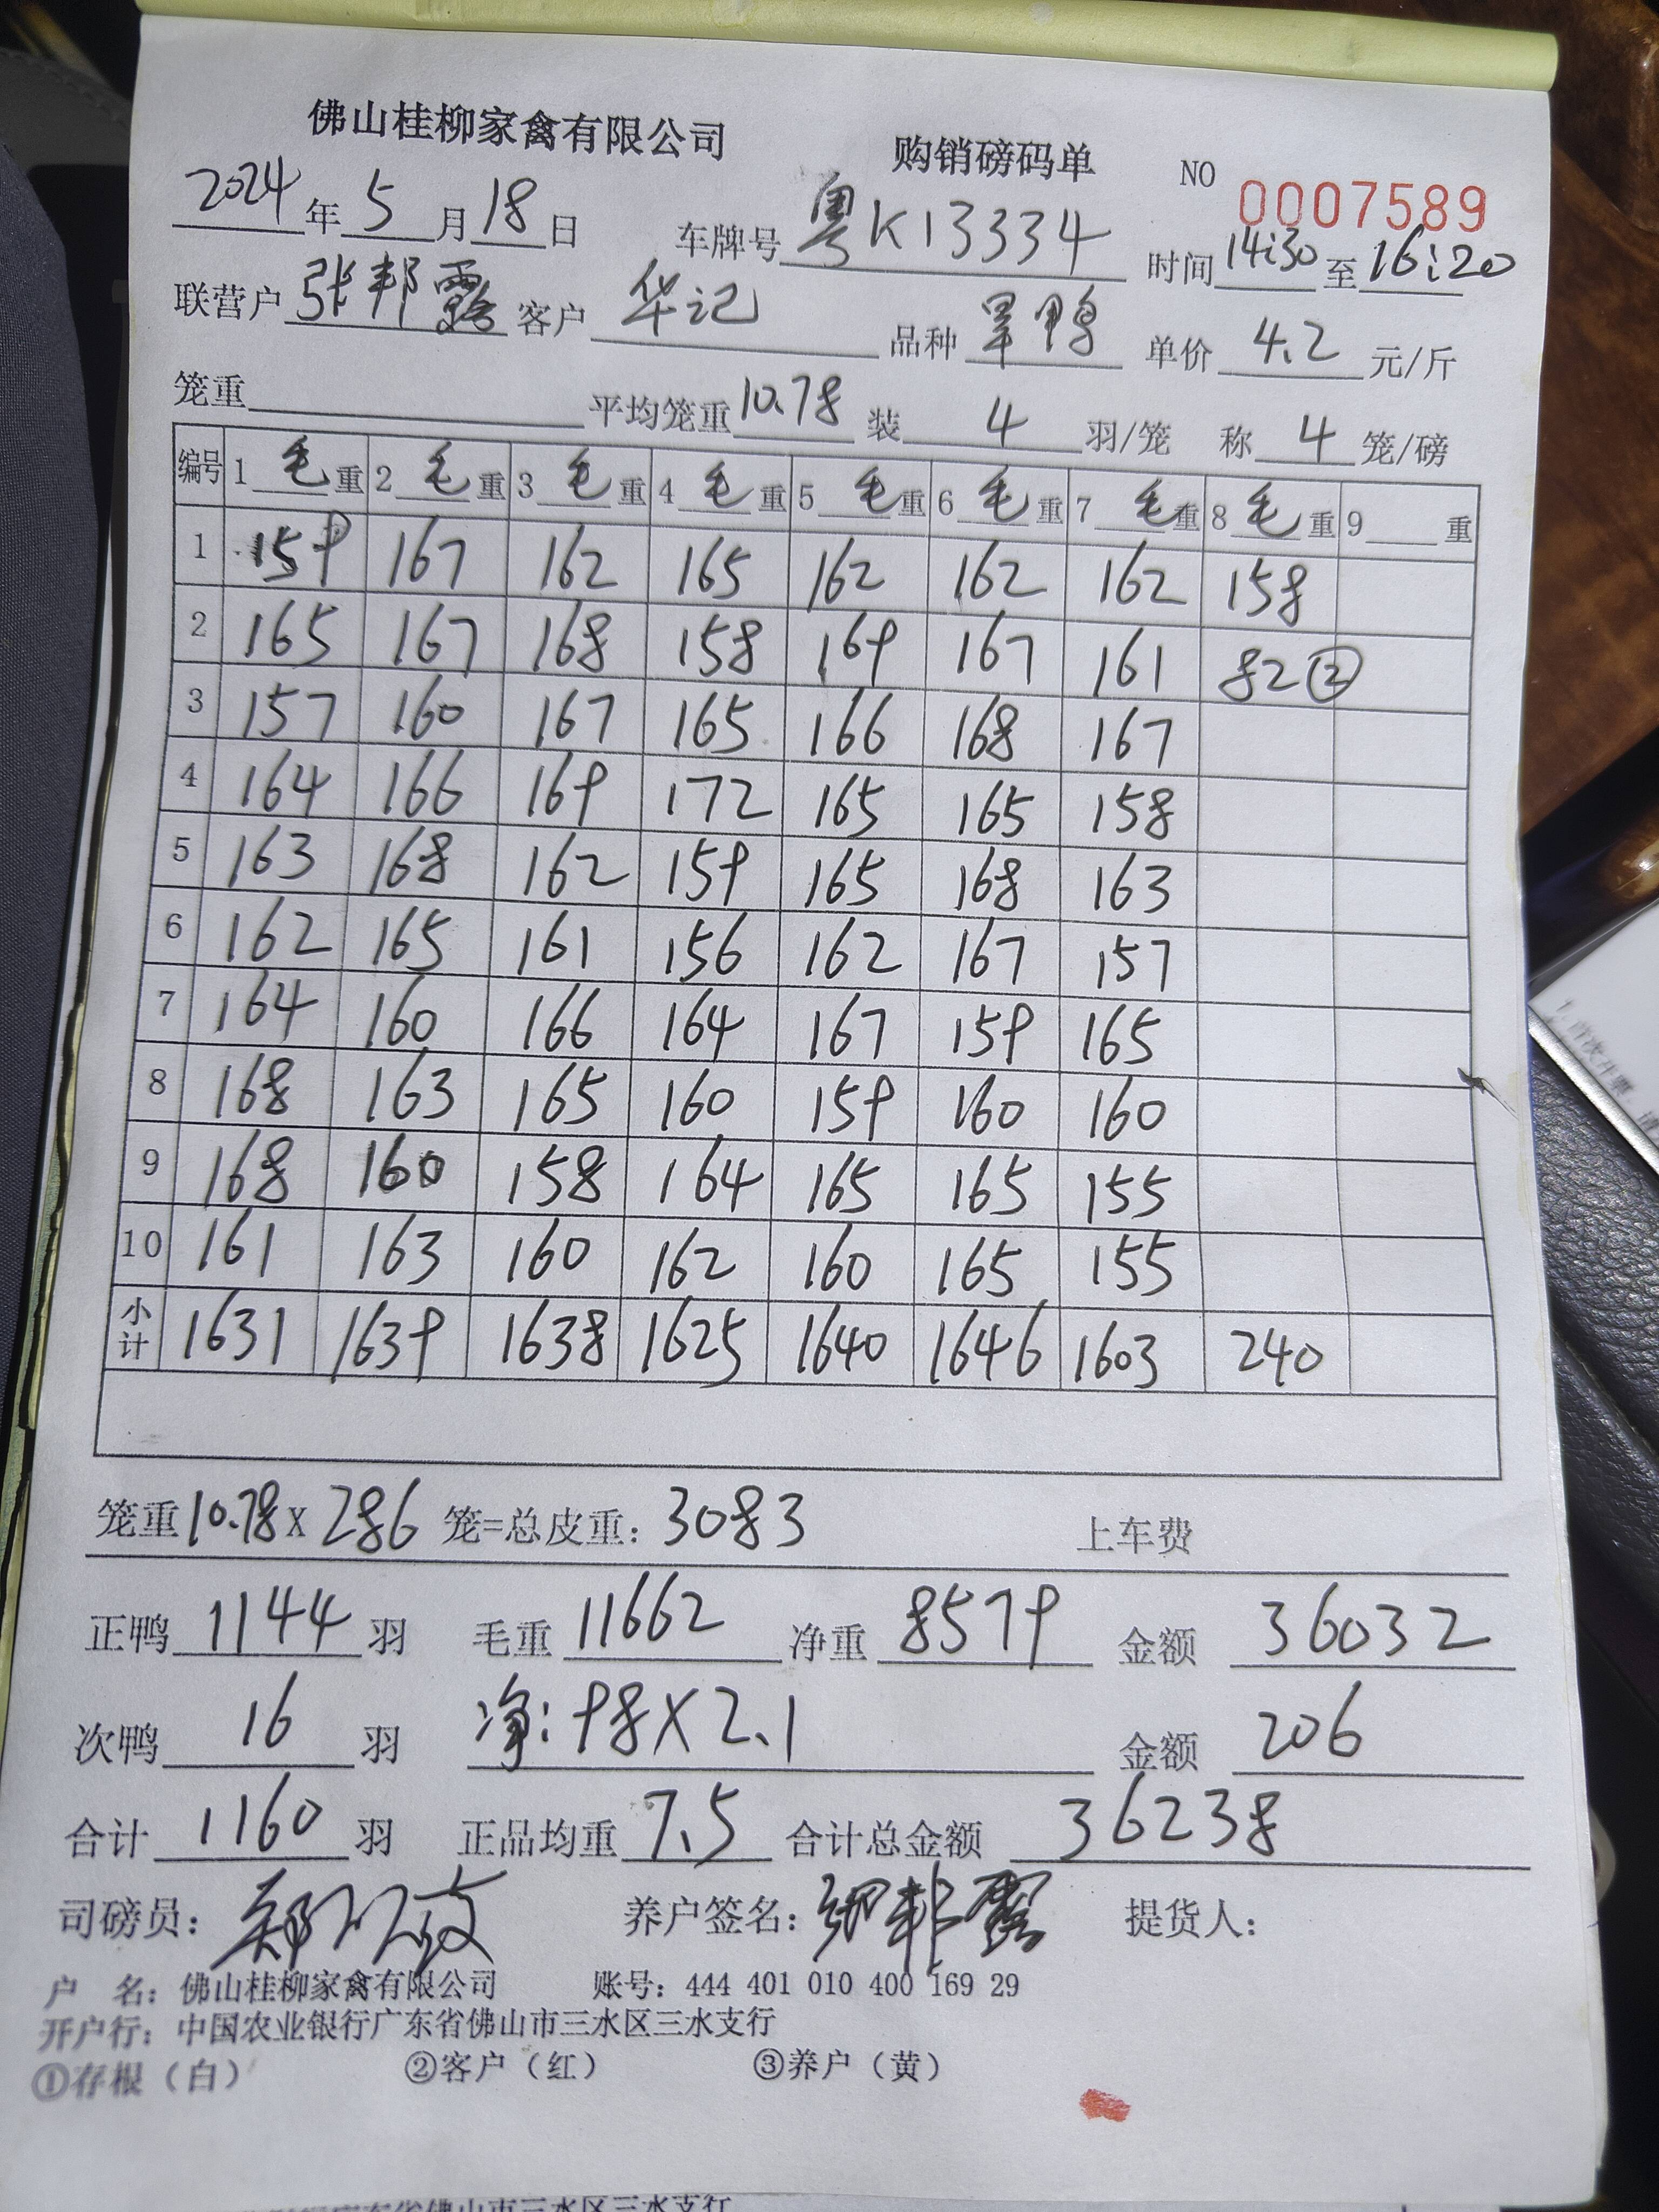 佛山桂柳家禽有限公司 购销磅码单 NO 0007589
2024年5月18日 车牌号 粤K13334 时间 14:30 至 16:20
联营户 张邦露 客户 华记 品种 单价 4.2 元/斤
笼重 平均笼重 10.78 装 4 羽/笼 称 4 笼/磅
编号 1 毛重 2 毛重 3 毛重 4 毛重 5 毛重 6 毛重 7 毛重 8 毛重 9 重
1 159 167 162 165 162 162 162 158
2 165 167 168 158 169 167 161 82②
3 157 160 167 165 166 168 167
4 164 166 169 172 165 165 158
5 163 168 162 159 165 168 163
6 162 165 161 156 162 167 157
7 164 160 166 164 167 159 165
8 168 163 165 160 159 160 160
9 168 160 158 164 165 165 155
10 161 163 160 162 160 165 155
小计 1631 1639 1638 1625 1640 1646 1603 240
笼重 10.78 x 286 笼=总皮重: 3083 上车费
正鸭 1144 羽 毛重 11662 净重 8579 金额 36032
次鸭 16 羽 净: 98X2.1 金额 206
合计 1160 羽 正品均重 7.5 合计总金额 36238
司磅员: 养户签名: 提货人:
户 名: 佛山桂柳家禽有限公司 账号: 444 401 010 400 169 29
开户行: 中国农业银行广东省佛山市三水区三水支行
①存根（白） ②客户（红） ③养户（黄）